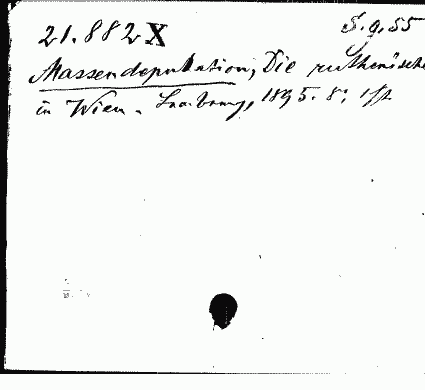 21.882 X
S.g.55
Massendeputation, Die ruthenische
in Wien. 1895. 8°.